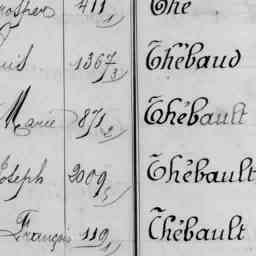 rosper 411 Thé
ouis 1367/3 Thébaud
Marie 871/2 Thébault
Joseph 2009/5 Thébault
François 119/1 Thébault